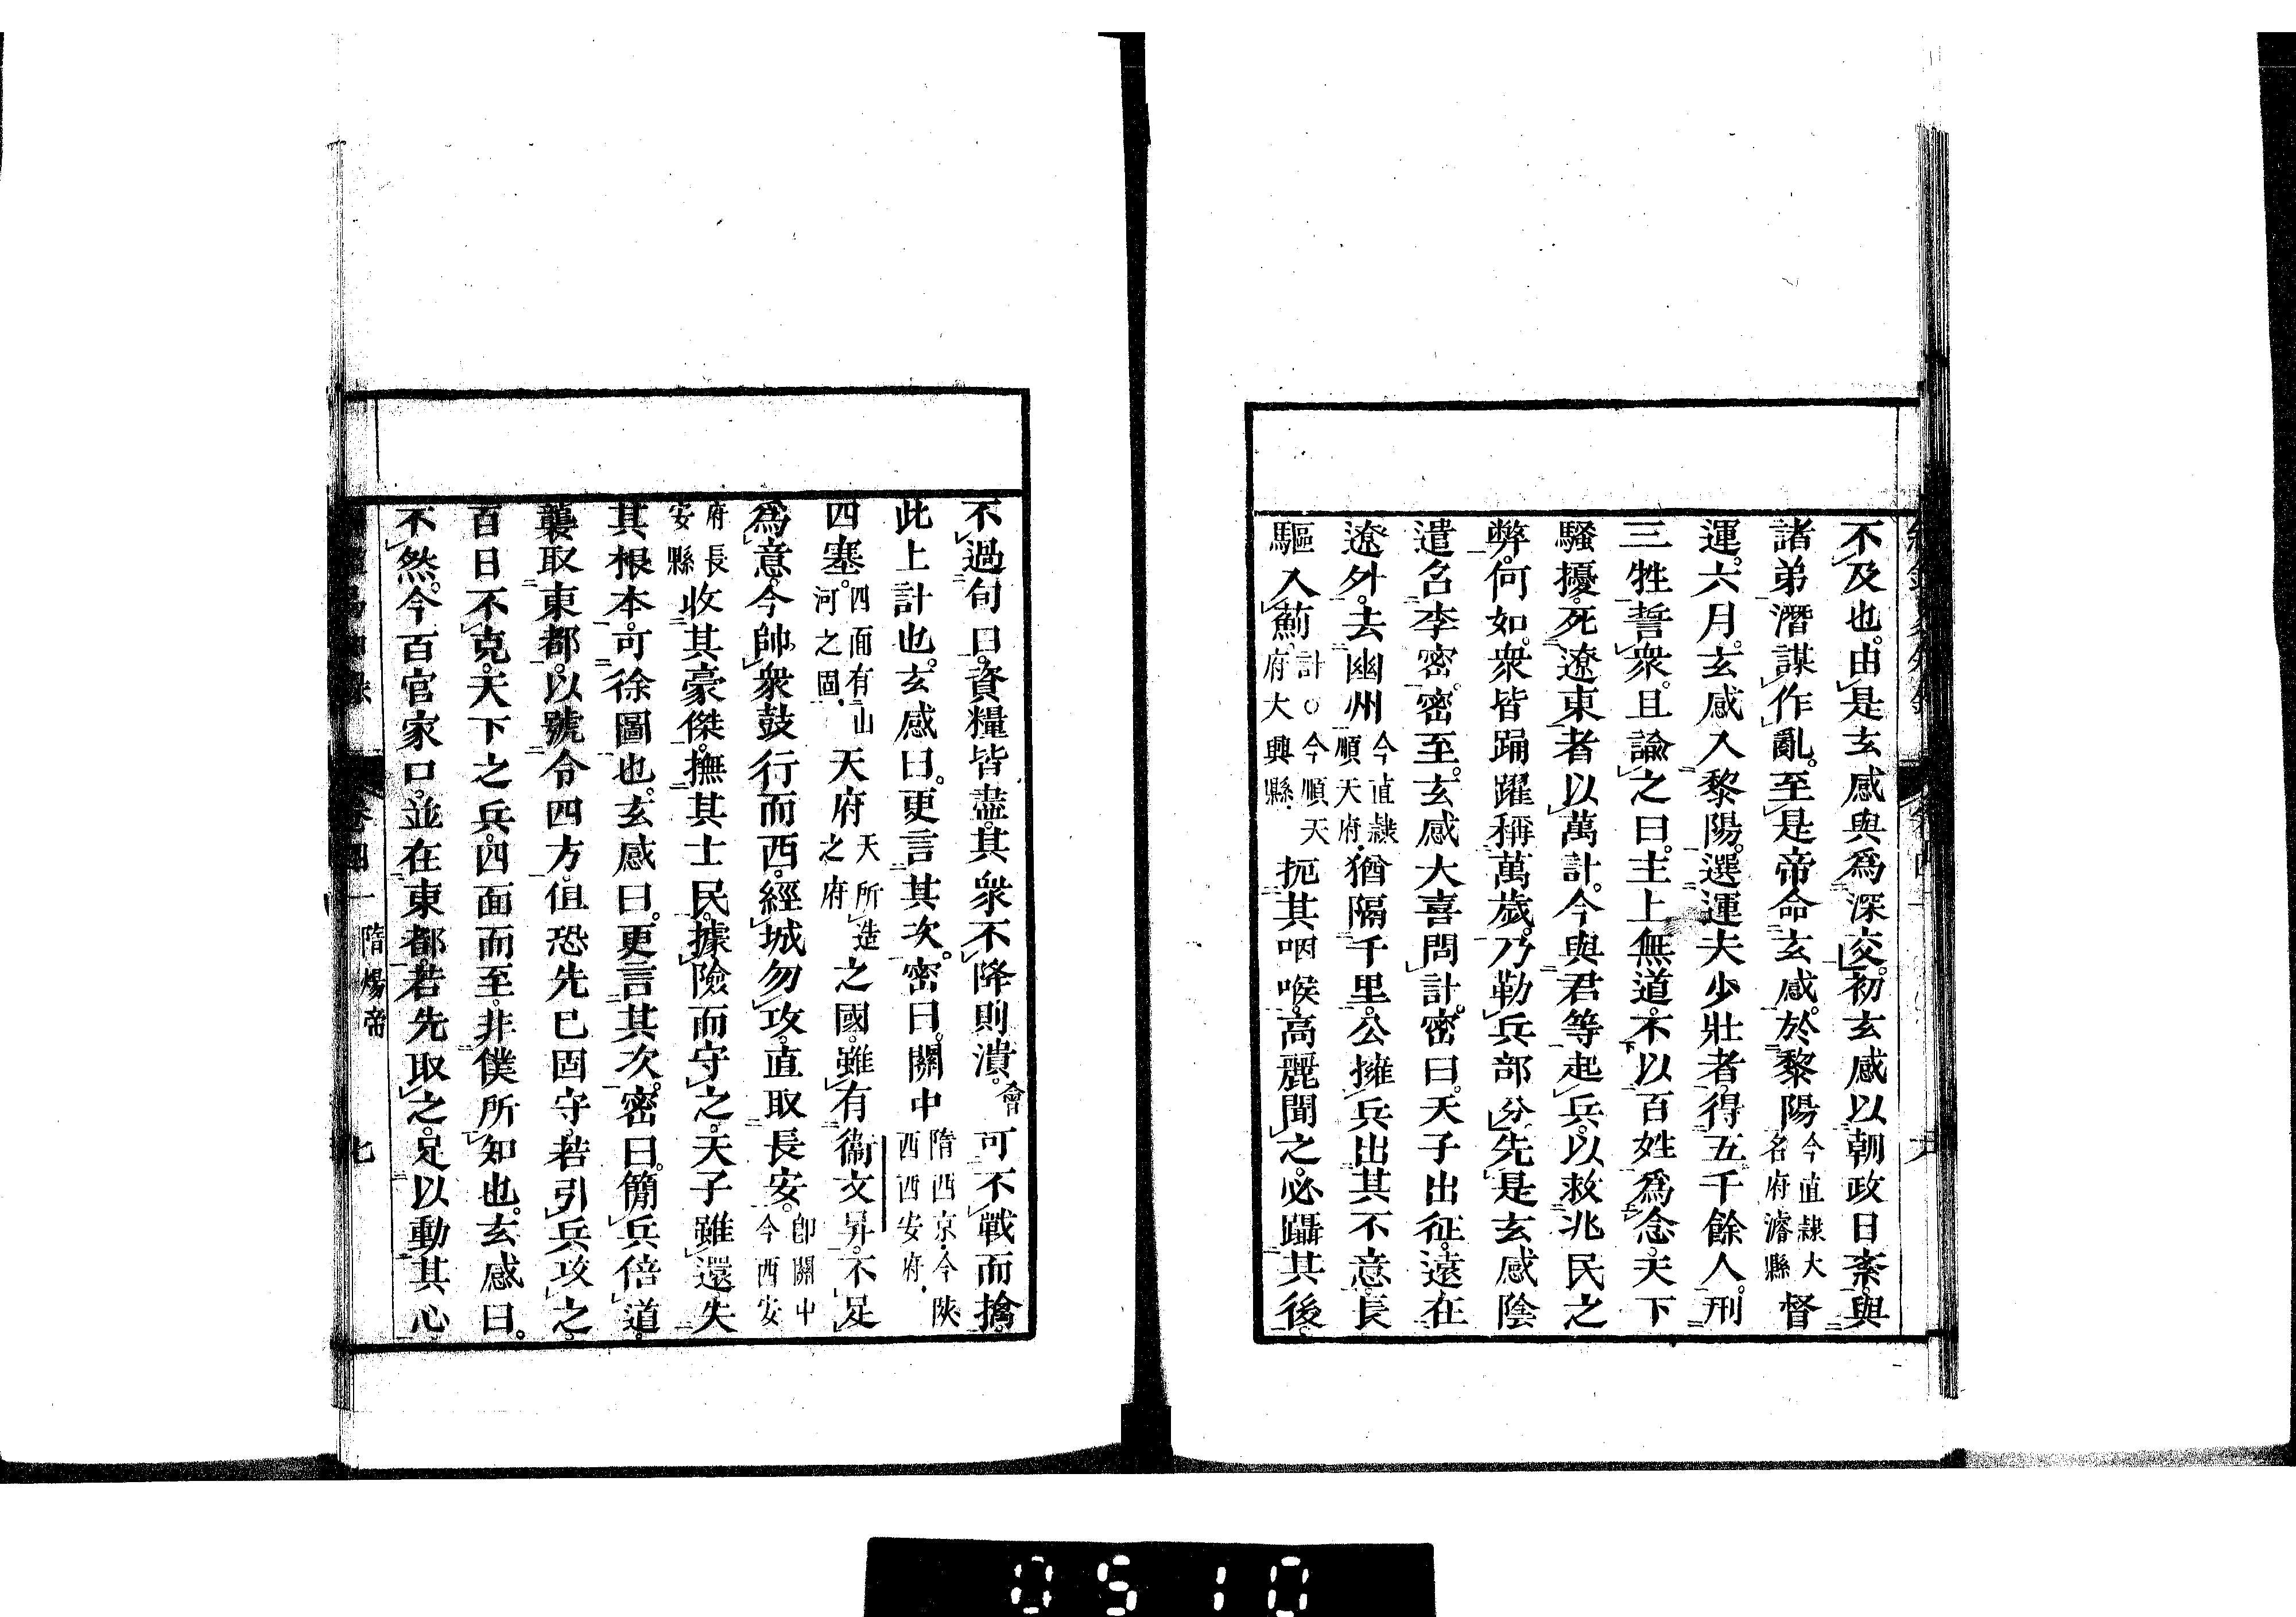 不及也。由是玄感與爲深交。初玄感以朝政日紊。與
諸弟潛謀作亂。至是帝命玄感。於黎陽今直隸大名府濬縣督
運。六月。玄感入黎陽。選運夫少壯者。得五千餘人。刑
三牲誓衆。且諭之曰。主上無道。不以百姓爲念。天下
騷擾。死遼東者以萬計。今與君等起兵。以救兆民之
弊。何如。衆皆踊躍稱萬歲。乃勒兵部分。先是玄感陰
遣召李密。密至。玄感大喜問計。密曰。天子出征。遠在
遼外。去幽州今直隸順天府猶隔千里。公擁兵出其不意。長
驅入薊計○今順天府大興縣扼其咽喉。高麗聞之。必躡其後。
不過旬日。資糧皆盡。其衆不降則潰。會可不戰而擒。
此上計也。玄感曰。更言其次。密曰。關中隋西京今陝西西安府
四塞。四面有山河之固天府天所造之府之國。雖有衞文昇。不足
爲意。今帥衆鼓行而西。經城勿攻。直取長安。卽關中今西安
府長安縣收其豪傑。撫其士民。據險而守之。天子雖還失
其根本。可徐圖也。玄感曰。更言其次。密曰。簡兵倍道。
襲取東都。以號令四方。但恐先已固守。若引兵攻之。
百日不克。天下之兵。四面而至。非僕所知也。玄感曰。
不然。今百官家口。並在東都。若先取之。足以動其心
卷四一 隋煬帝 七
0510